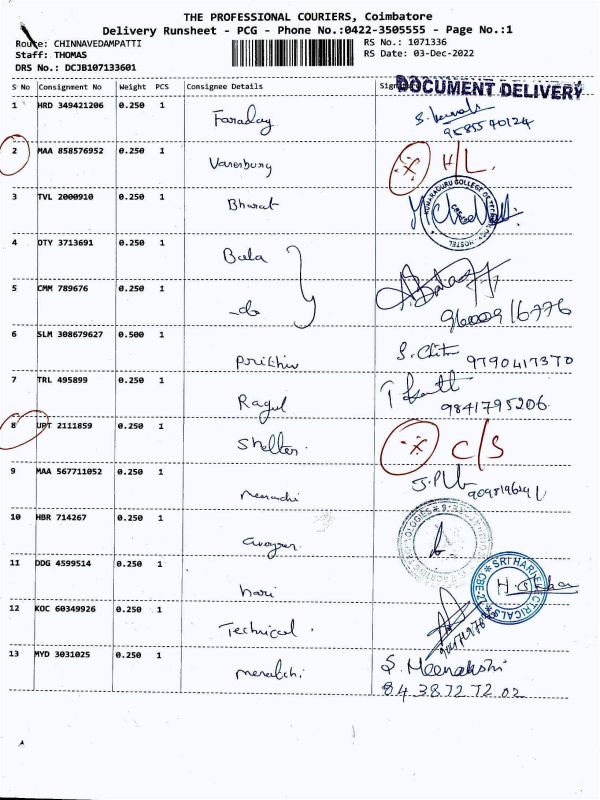 THE PROFESSIONAL COURIERS, Coimbatore
Delivery Runsheet - PCG - Phone No.:0422-3505555 - Page No.:1
Route: CHINNAVEDAMPATTI RS No.: 1071336
Staff: THOMAS RS Date: 03-Dec-2022
DRS No.: DCJB107133601
DOCUMENT DELIVERY
S No Consignment No Weight PCS Consignee Details
1 HRD 349421206 0.250 1 Faraday
9585540124
2 MAA 858576952 0.250 1 H/L
3 TVL 2000910 0.250 1 Bharat
KUMARAGURU COLLEGE OF HOSTEL
4 OTY 3713691 0.250 1 Bala
5 CMM 789676 0.250 1 -do
9600916776
6 SLM 308679627 0.500 1 Prithiv
9790417370
7 TRL 495899 0.250 1 Ragul
9841795206
8 UPT 2111859 0.250 1 Shelter C/S
9 MAA 567711052 0.250 1
10 HBR 714267 0.250 1
11 DDG 4599514 0.250 1 hari
SRI HARI ELECTRICALS
12 KOC 60349926 0.250 1 Technical
13 MYD 3031025 0.250 1
S. Meenakshi
8438727202